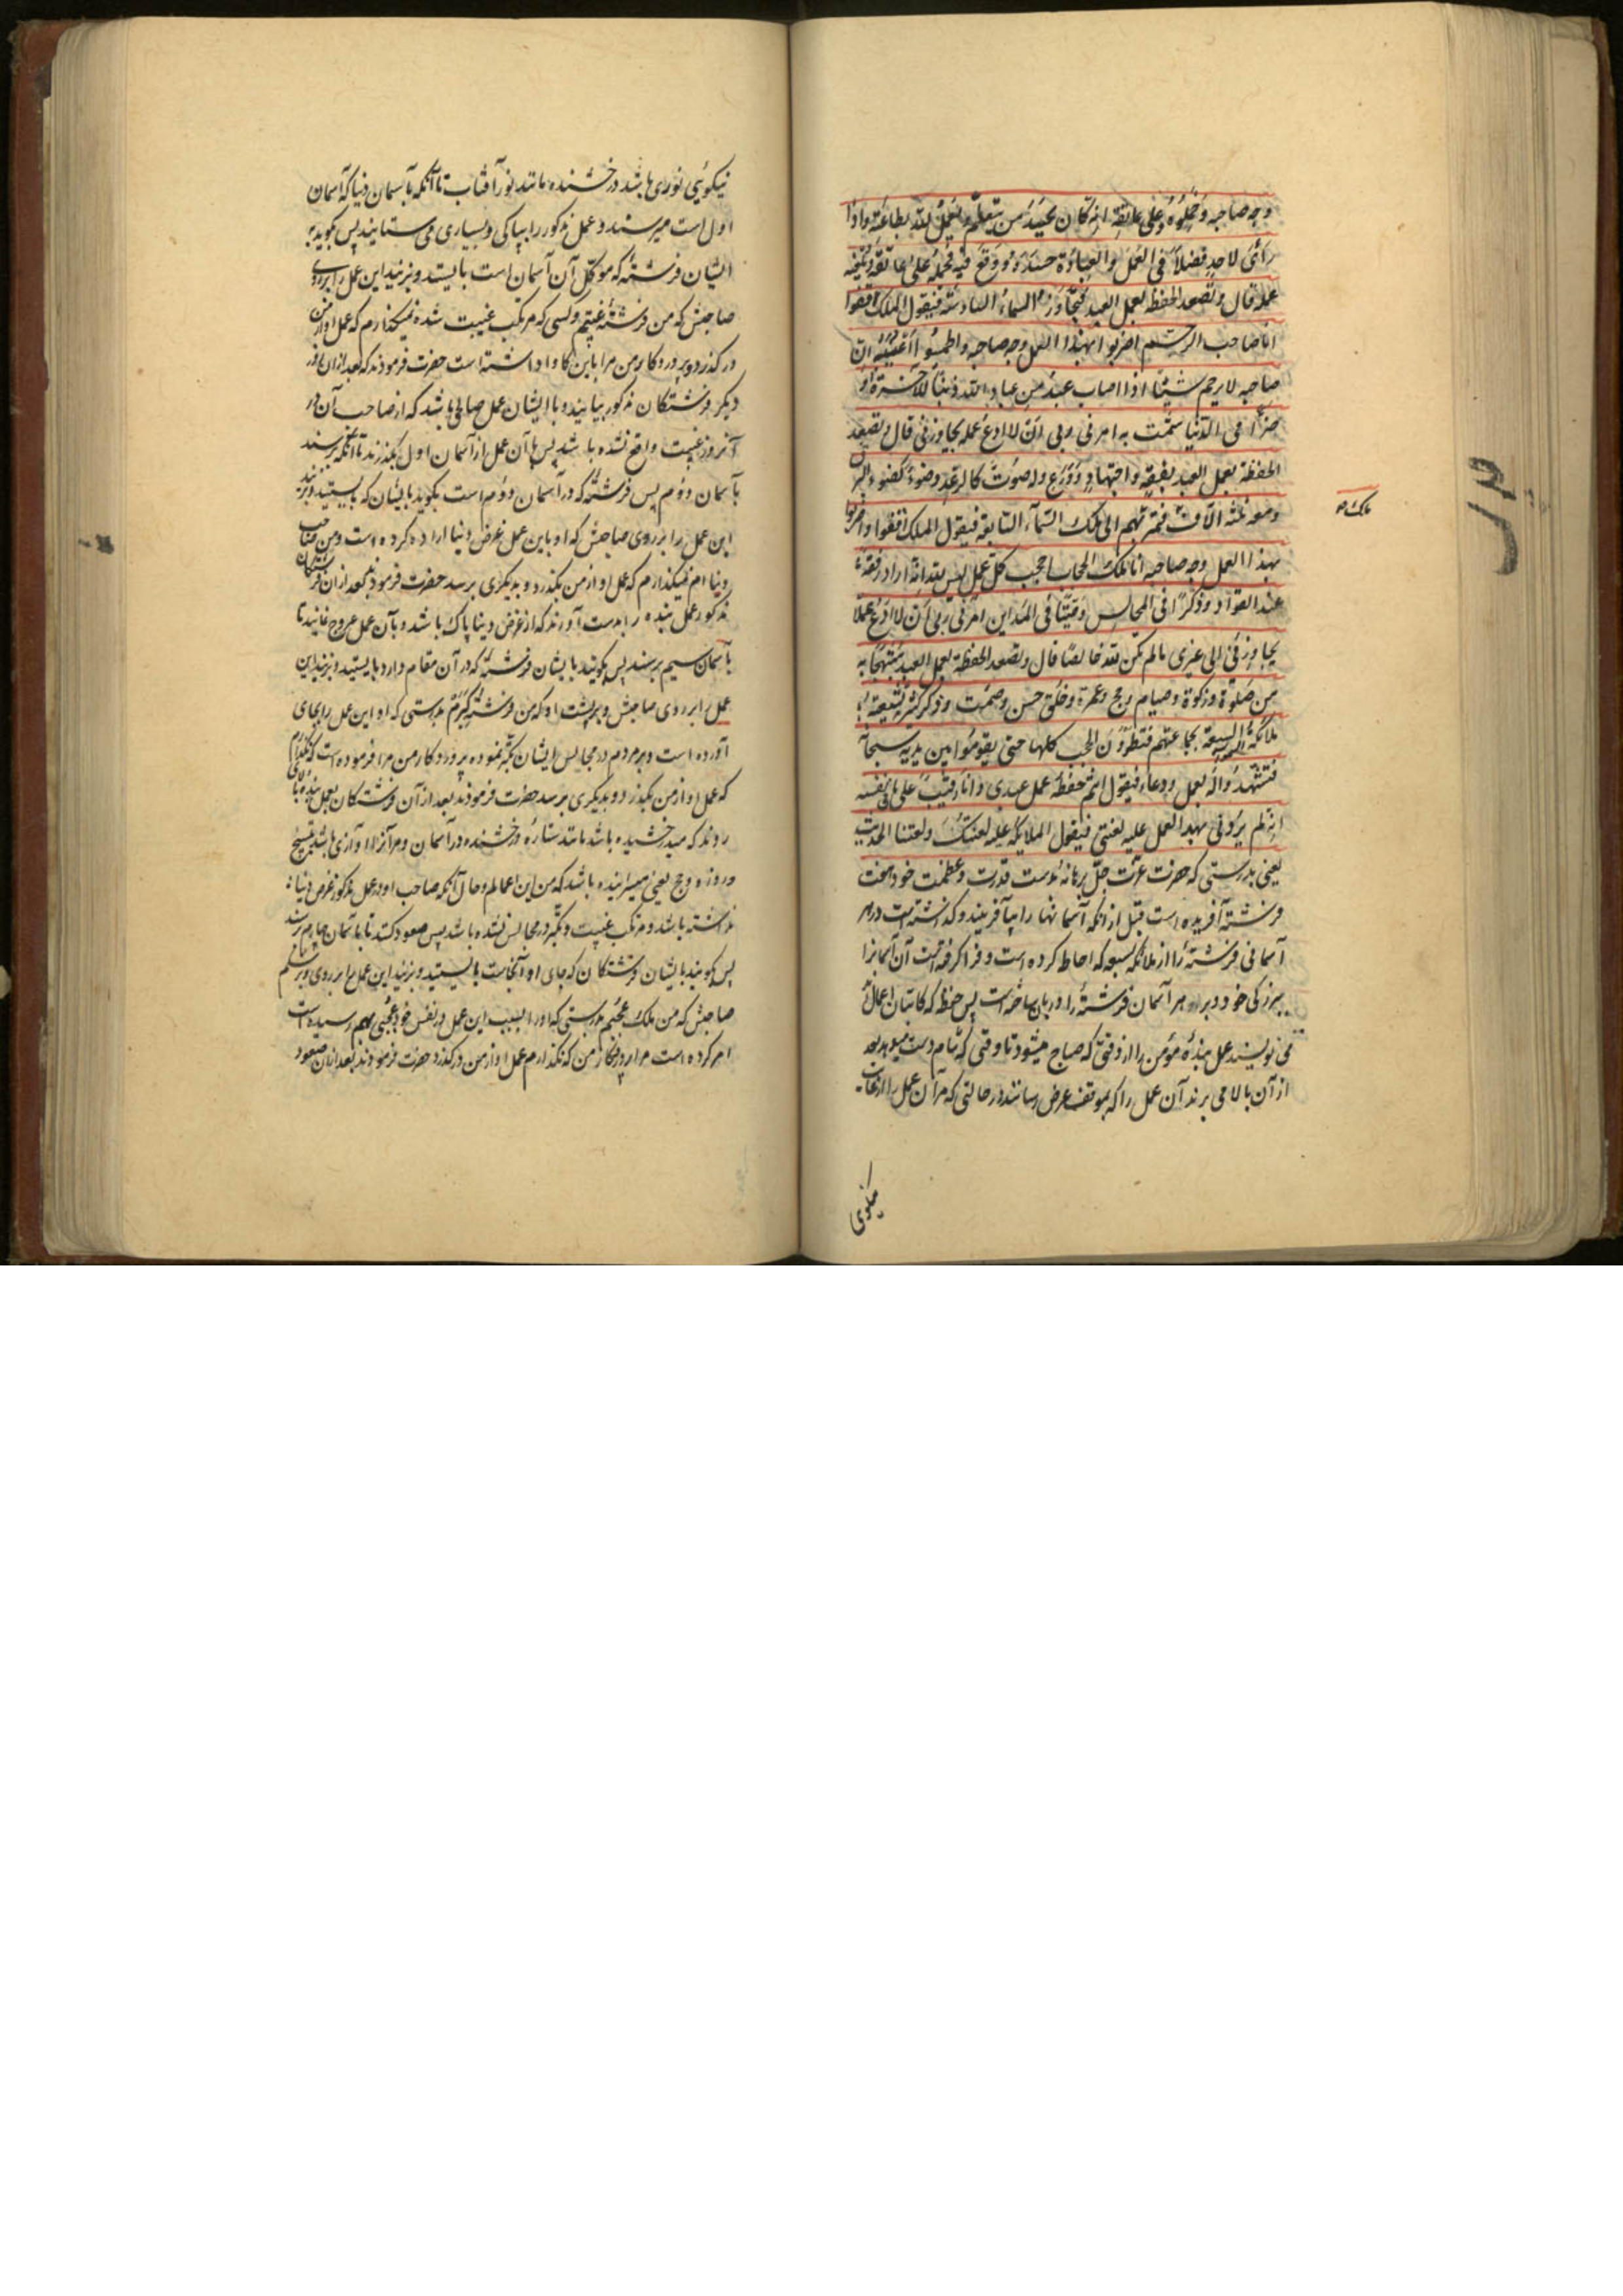 وجه صاحبه وحملوه على عاتقه انه كان يحسد من يتعلم ويعمل لله بطاعته واذا
رأى لاحد فضلا في العمل والعبادة حسده ووقع فيه فيحمله على عاتقه ويلعنه
عمله قال وتصعد الحفظة بعمل العبد فيتجاوز السماء السادسة فيقول الملك قفوا
انا صاحب الرحمة اضربوا بهذا العمل وجه صاحبه واطمسوا عينيه ان
صاحبه لا يرحم شيئا اذا اصاب عبد من عباد الله ذنبا للآخرة او
ضرا في الدنيا شمت به امرني ربي ان لا ادع عمله يجاوزني قال وتصعد
الحفظة بعمل العبد بفقه واجتهاد وورع وله صوت كالرعد وضوء كضوء البرق
ومعه ثلثة آلاف فتمر بهم الى ملك السماء السابعة فيقول الملك قفوا واضربوا
ملك ص
بهذا العمل وجه صاحبه انا ملك الحجاب احجب كل عمل ليس لله انه اراد رفعة
عند القواد وذكرا في المجالس وصيتا في المداين امرني ربي ان لا ادع عملا
يجاوزني الى غيري ما لم يكن لله خالصا قال وتصعد الحفظة بعمل العبد مبتهجا به
من صلوة وزكوة وصيام وحج وعمرة وخلق حسن وصمت وذكر كثير تشيعه
ملائكة السبعة بجماعتهم فتطؤون الحجب كلها حتى يقوموا بين يديه سبحانه
فتشهدوا له بعمل ودعاء فيقول انتم حفظة عمل عبدي وانا رقيب على ما في نفسه
انه لم يردني بهذا العمل عليه لعنتي فيقول الملائكة عليه لعنتك ولعنتنا الحديث
يعنى بدرستى كه حضرت عزت جل برهانه بدست قدرت وعظمت خود هفت
فرشته آفريده است قبل از انكه آسمانها را بيافريند وگذاشته است در هر
آسمانى فرشته را از ملائكه سبعه كه احاطه كرده است و فرا گرفته است آن آسمانرا
ببزرگى خود و بر در هر آسمان فرشته را دربان ساخته است پس حفظه كه كاتبان اعمال
مى نويسند عمل بنده مؤمن را از وقتى كه صباح ميشود تا وقتى كه شام دست ميدهد بعد
از آن بالا مى برند آن عمل را كه بموقف عرض رسانند در حالتى كه مر آن عمل را از غايت
نيكوئى
نيكوئى نورى باشد درخشنده مانند نور آفتاب تا آنكه بآسمان دنيا كه آسمان
اول است ميرسند و عمل مذكور را بپاكى و بسيارى مى ستايند پس گويد به
ايشان فرشته كه موكل آن آسمان است بايستيد و بزنيد اين عمل را بر روى
صاحبش كه من فرشته غيبتم وكسى كه مرتكب غيبت شده نميگذارم كه عمل او از من
درگذرد و پروردگار من مرا باين كار واداشته است حضرت فرمودند كه بعد از ان روز
ديگر فرشتگان مذكور بيايند و با ايشان عمل صالحى باشد كه از صاحب آن در
آنروز غيبت واقع نشده باشد پس با آن عمل از آسمان اول بگذرند تا آنكه برسند
بآسمان دوم پس فرشته كه در آسمان دوم است بگويد بايشان كه بايستيد و بزنيد
اين عمل را بر روى صاحبش كه او باين عمل غرض دنيا اراده كرده است و من صاحب
دنيا ام نميگذارم كه عمل او از من بگذرد و بديگرى برسد حضرت فرمودند بعد از ان فرشتگان
مذكور عمل بنده را بدست آورند كه از غرض دنيا پاك باشد و بآن عمل عروج نمايند تا
بآسمان سيم برسند پس گويند بايشان فرشته كه در آن مقام دارد بايستيد و بزنيد اين
عمل را بر روى صاحبش و بر پشت او كه من فرشته كبرم بدرستى كه او اين عمل را بجاى
آورده است و بر مردم در مجالس ايشان تكبر نموده پروردگار من مرا فرموده است كه نگذارم
كه عمل او از من بگذرد و بديگرى برسد حضرت فرمودند بعد از آن فرشتگان بعمل بنده بالا
روند كه ميدرخشيده باشد مانند ستاره درخشنده در آسمان و مر آنرا آوازى باشد بتسبيح
و روزه و حج يعنى ميسراينده باشد كه من اين اعمالم و حال آنكه صاحب او در عمل مذكور غرض دنيا
نداشته باشد و مرتكب غيبت و تكبر در مجالس نشده باشد پس صعود كنند تا بآسمان چهارم برسند
پس گويند بايشان فرشتگان كه جاى او آنجاست بايستيد و بزنيد اين عمل را بر روى و بر شكم
صاحبش كه من ملك عجبم بدرستى كه او را بسبب اين عمل در نفس خود عجبى بهم رسيده است
امر كرده است مرا پروردگار من كه نگذارم عمل او از من درگذرد حضرت فرمودند بعد از ان صعود